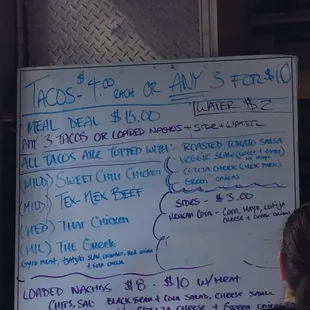 TACOS - $4.00 each OR ANY 3 FOR $10
WATER $2
MEAL DEAL $15.00
ANY 3 TACOS OR LOADED NACHOS + SIDE + WATER
ALL TACOS ARE TOPPED WITH: ROASTED TOMATO SALSA
VEGGIE SLAW
COTIJA CHEESE
GREEN ONIONS
(MILD) SWEET CHILI CHICKEN
(MILD) TEX-MEX BEEF
(MED) THAI CHICKEN
(MIL) THE GREEK
GYRO MEAT,
SIDES - $3.00
MEXICAN CORN - CORN, MAYO, COTIJA
CHEESE + GREEN ONIONS
LOADED NACHOS $8 - $10 W/MEAT
CHIPS, BLACK BEAN + CORN SALAD, CHEESE
COTIJA CHEESE + GREEN ONIONS